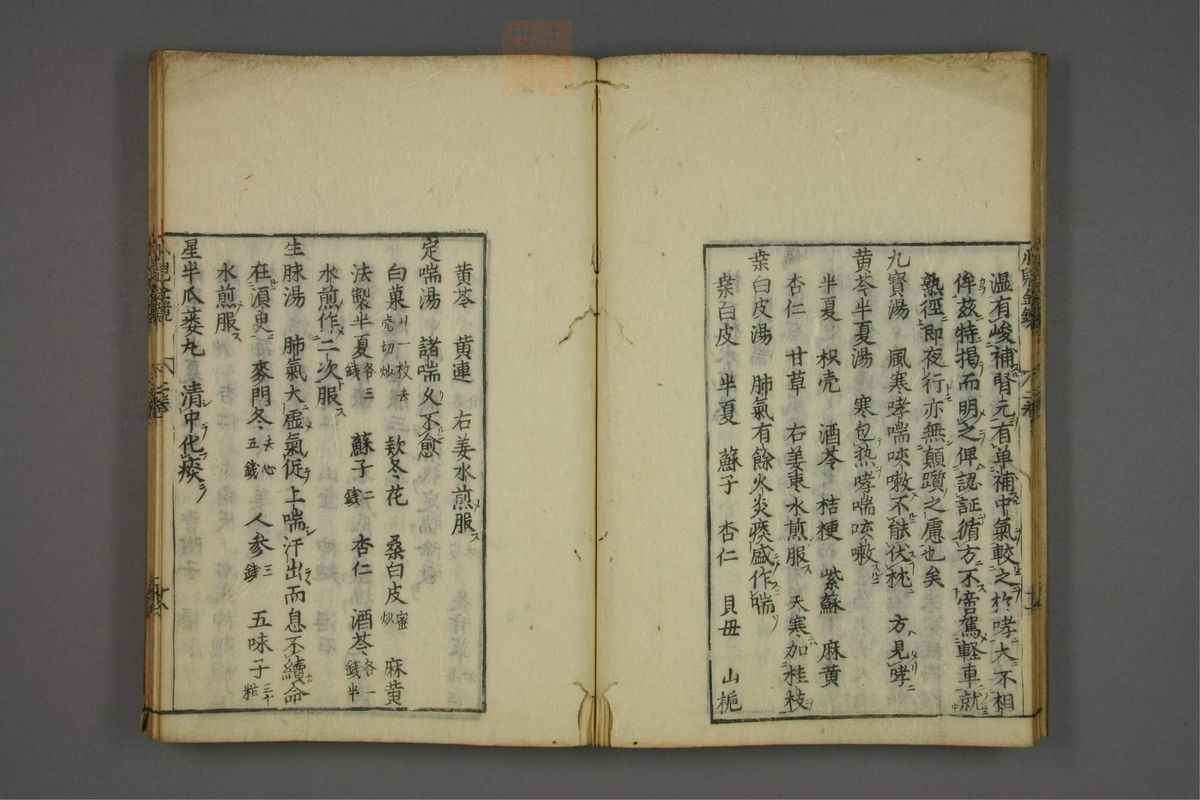 温有峻補腎元有单補中氣較之於哮大不相
侔茲特揭而明之俾認証循方不啻駕軽車就
熟徑即夜行亦無顛躓之慮也矣
九寶湯　風寒哮喘咳嗽不能伏枕　方見哮
黄芩半夏湯　寒包热哮喘咳嗽
半夏　枳壳　酒芩　桔梗　紫蘇　麻黄
杏仁　甘草　右姜枣水煎服　天寒加桂枝
桒白皮湯　肺氣有餘火炎痰盛作喘
桒白皮　半夏　蘇子　杏仁　貝母　山梔
黄芩　黄連　右姜水煎服
定喘湯　諸喘久不愈
白菓 廿一枚去壳切炒　欵冬花　桑白皮 蜜炒　麻黄
法製半夏 各三錢　蘇子 二錢　杏仁　酒芩 各一錢半
水煎作二次服
生脉湯　肺氣大虚氣促上喘汗出而息不續命
在須臾　麥門冬 去心五錢　人参 三錢　五味子 三十粒
水煎服
星半瓜蒌丸　清中化痰